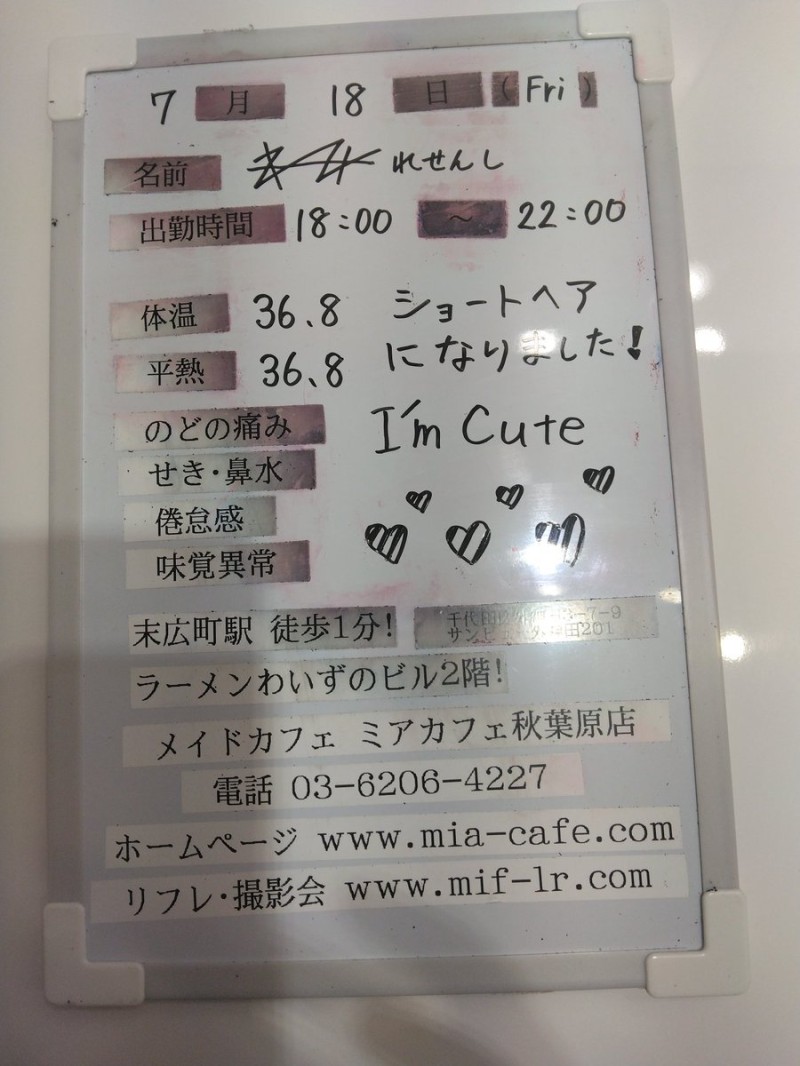 7 月 18 日 (Fri)
名前 れせんし
出勤時間 18:00 ～ 22:00
体温 36.8
平熱 36.8
ショートヘア
になりました!
I'm Cute
のどの痛み
せき・鼻水
倦怠感
味覚異常
末広町駅 徒歩1分!
千代田区 -7-9
サン 田201
ラーメンわいずのビル2階!
メイドカフェ ミアカフェ秋葉原店
電話 03-6206-4227
ホームページ www.mia-cafe.com
リフレ・撮影会 www.mif-lr.com